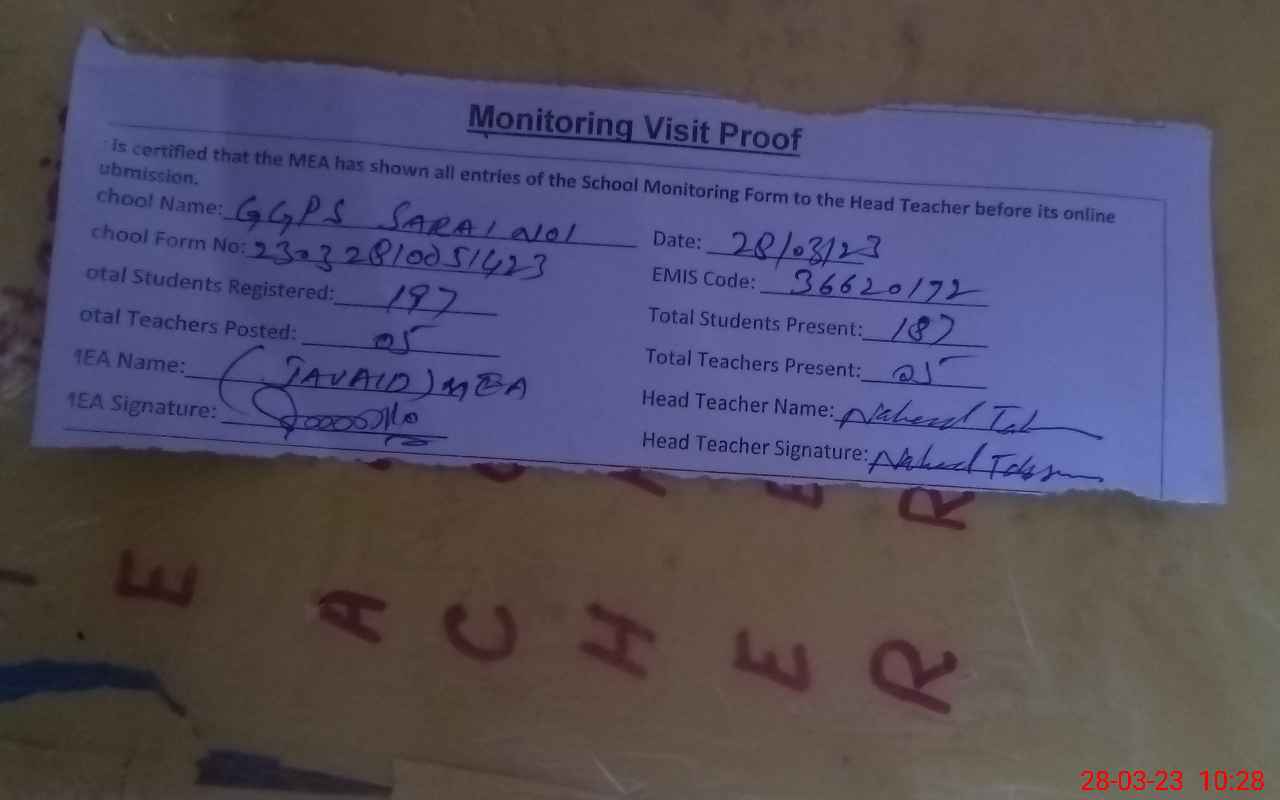 Monitoring Visit Proof
is certified that the MEA has shown all entries of the School Monitoring Form to the Head Teacher before its online
ubmission.
chool Name: GGPS SARAI NOl
Date: 28/03/23
chool Form No: 23032810051423
EMIS Code: 36620172
otal Students Registered: 197
Total Students Present: 187
otal Teachers Posted: 05
Total Teachers Present: 05
MEA Name: (JAVAID) MEA
Head Teacher Name: Naheed
MEA Signature:
Head Teacher Signature: Naheed
E R
E A C H E R
28-03-23 10:28